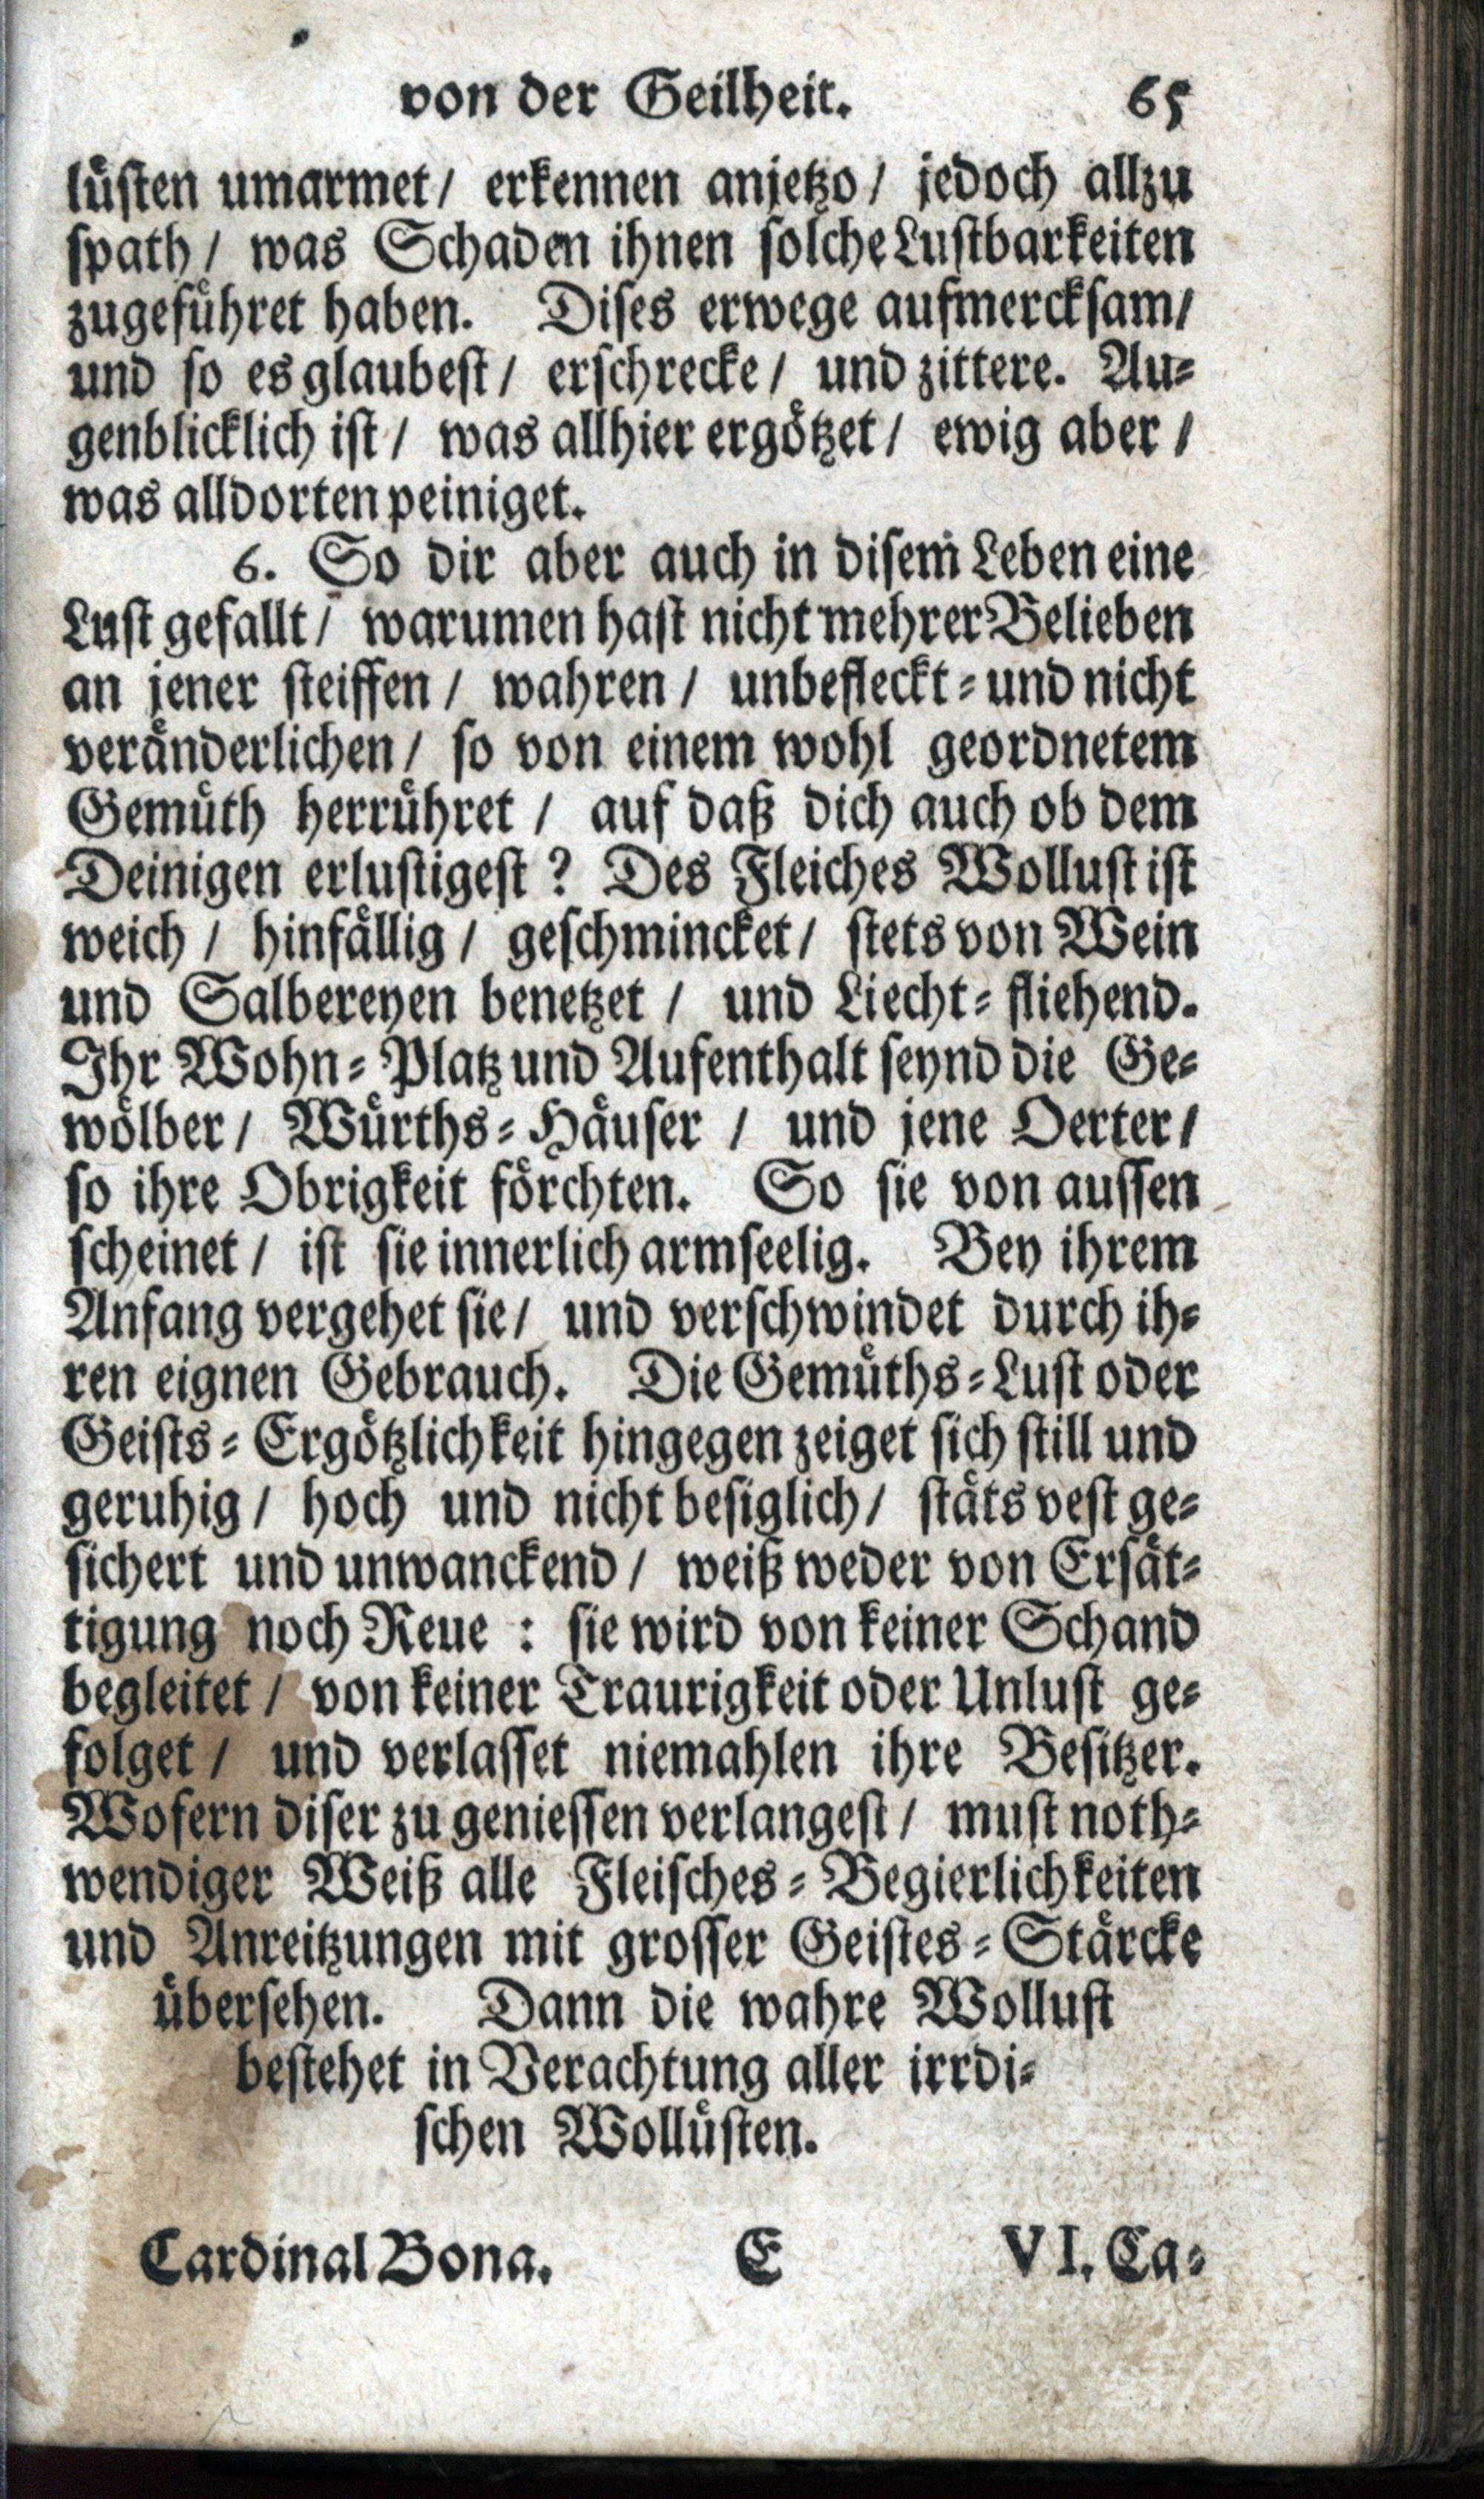 von der Geilheit. 65
lüsten umarmet/ erkennen anjetzo/ jedoch allzu
spath/ was Schaden ihnen solche Lustbarkeiten
zugeführet haben. Dises erwege aufmercksam/
und so es glaubest/ erschrecke/ und zittere. Au-
genblicklich ist/ was allhier ergötzet/ ewig aber/
was alldorten peiniget.
6. So dir aber auch in disem Leben eine
Lust gefallt/ warumen hast nicht mehrer Belieben
an jener steiffen/ wahren/ unbefleckt- und nicht
veränderlichen/ so von einem wohl geordnetem
Gemüth herrühret/ auf daß dich auch ob dem
Deinigen erlustigest? Des Fleiches Wollust ist
weich/ hinfällig/ geschmincket/ stets von Wein
und Salbereyen benetzet/ und Liecht-fliehend.
Ihr Wohn-Platz und Aufenthalt seynd die Ge-
wölber/ Würths-Häuser/ und jene Oerter/
so ihre Obrigkeit förchten. So sie von aussen
scheinet/ ist sie innerlich armseelig. Bey ihrem
Anfang vergehet sie/ und verschwindet durch ih-
ren eignen Gebrauch. Die Gemüths-Lust oder
Geists-Ergötzlichkeit hingegen zeiget sich still und
geruhig/ hoch und nicht besiglich/ stäts vest ge-
sichert und unwanckend/ weiß weder von Ersät-
tigung noch Reue: sie wird von keiner Schand
begleitet/ von keiner Traurigkeit oder Unlust ge-
folget/ und verlasset niemahlen ihre Besitzer.
Wofern diser zu geniessen verlangest/ must noth-
wendiger Weiß alle Fleisches-Begierlichkeiten
und Anreitzungen mit grosser Geistes-Stärcke
übersehen. Dann die wahre Wollust
bestehet in Verachtung aller irrdi-
schen Wollüsten.
Cardinal Bona. E VI. Ca-